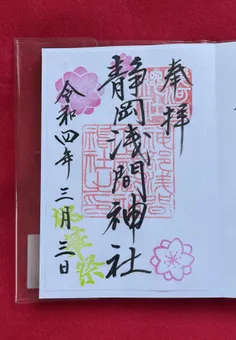 奉拝
静岡浅間神社
令和四年三月三日
桃華祭